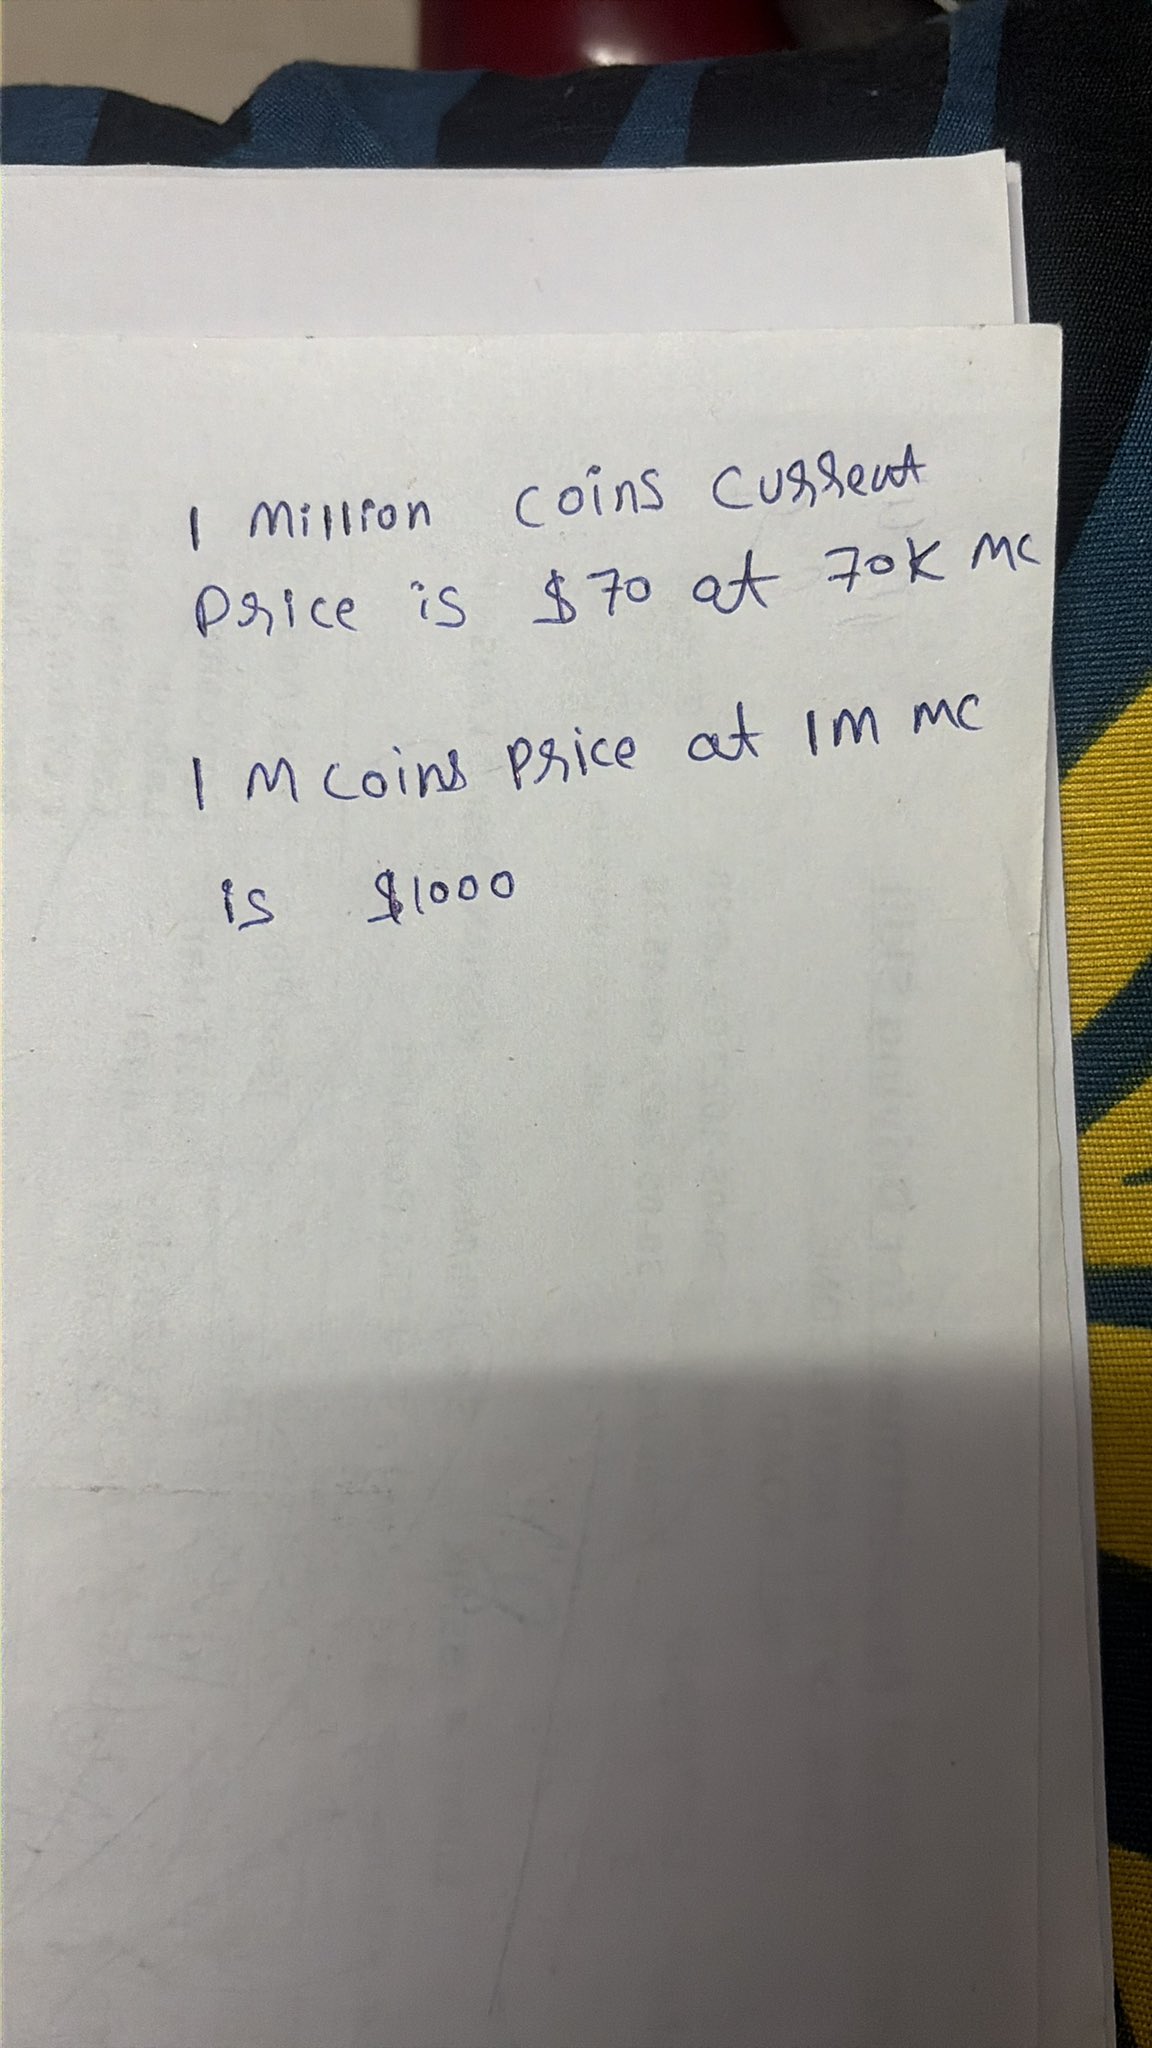 1 Million coins current
Price is $70 at 70K MC
1 M coins price at 1M MC
is $1000